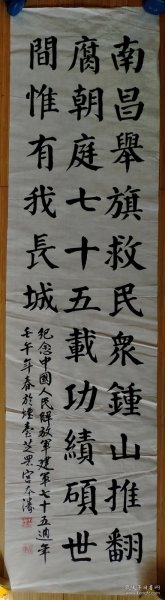 南昌舉旗救民衆鍾山推翻
腐朝庭七十五載功績碩世
間惟有我長城
紀念中國人民解放軍建軍七十五週年
壬午年春於煙臺芝罘宮本濤